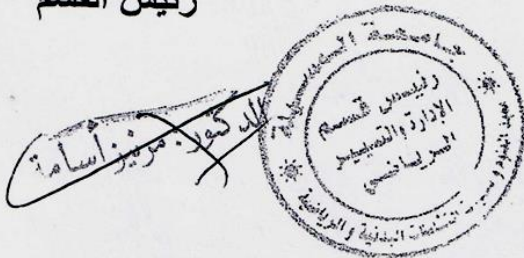 رئيس القسم
الدكتور: مرنيز أسامة
جامعة المسيلة
رئيس قسم
الإدارة والتسيير
الرياضي
معهد علوم وتقنيات النشاطات البدنية والرياضية